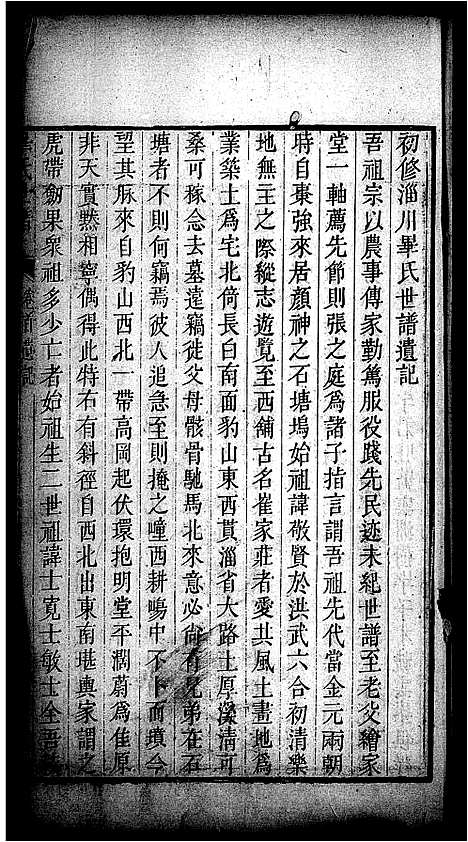 初修淄川畢氏世譜遺記
吾祖宗以農事傳家勤篤服役踐先民迹未紀世譜至老父繪家
堂一軸薦先節則張之庭爲諸子指言謂吾祖先代當金元兩朝
時自棗強來居顏神之石塘塢始祖諱敬賢於洪武六合初清樂
地無主之際縱志遊覽至西舖古名崔家莊者愛其風土畫地爲
業築土爲宅北倚長白南面豹山東西貫淄省大路土厚溪清可
桑可稼念去墓遠竊徙父母骸骨馳馬北來意必尚有兄弟在石
塘者不則何竊焉彼人追急至則掩之疃西耕暘中不卜而塡今
望其脉來自豹山西北一帶高岡起伏環抱明堂平濶蔚爲佳原
非天實黙相寧偶得此特右有斜徑自西北出東南堪輿家謂之
虎帶劒果衆祖多少亡者始祖生二世祖諱士寬士敏士全吾